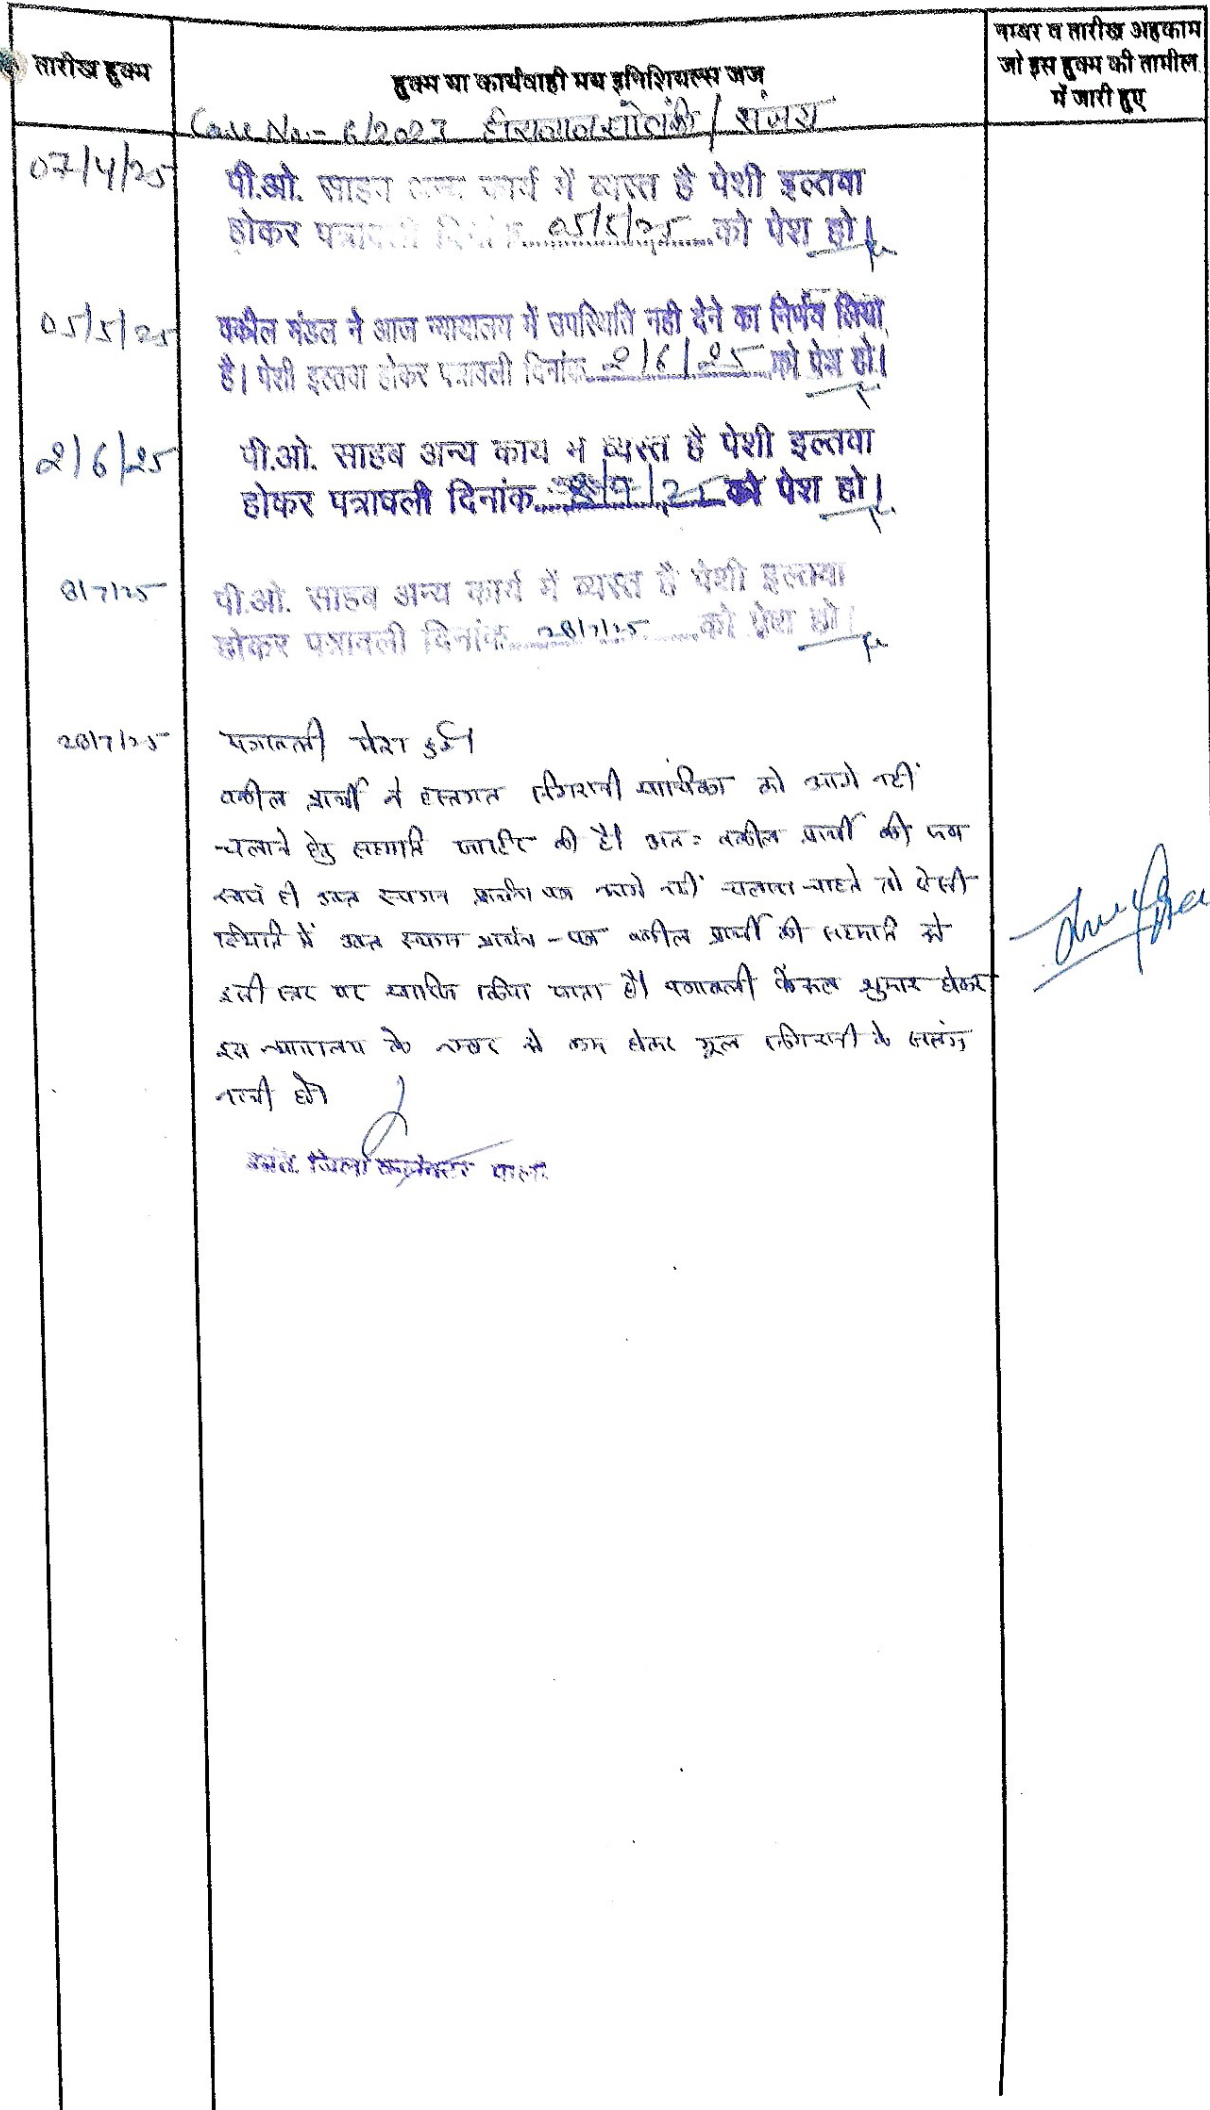 तारीख हुक्म
हुक्म या कार्यवाही मय इनिशियल्स जज
नम्बर व तारीख अहकाम
जो इस हुक्म की तामील
में जारी हुए
Case No:- 6/2023 हीरालाल सोलंकी / संजय
07/4/25
पी.ओ. साहब अन्य कार्य में व्यस्त है पेशी इल्तवा
होकर पत्रावली दिनांक 05/5/25 को पेश हो।
05/5/25
वकील मंडल ने आज न्यायालय में उपस्थिति नही देने का निर्णय लिया
है। पेशी इल्तवा होकर पत्रावली दिनांक 2/6/25 को पेश हो।
2/6/25
पी.ओ. साहब अन्य कार्य में व्यस्त है पेशी इल्तवा
होकर पत्रावली दिनांक 8/7/25 को पेश हो।
8/7/25
पी.ओ. साहब अन्य कार्य में व्यस्त है पेशी इल्तवा
होकर पत्रावली दिनांक 28/7/25 को पेश हो।
28/7/25
पत्रावली पेश हुई।
वकील प्रार्थी ने हस्तगत निगरानी याचिका को आगे नहीं
चलाने हेतु सहमति जाहिर की है। अतः वकील प्रार्थी की जब
स्वयं ही उक्त स्थगन प्रार्थना पत्र आगे नहीं चलाना चाहते तो ऐसी
स्थिति में उक्त स्थगन प्रार्थना-पत्र वकील प्रार्थी की सहमति से
इसी स्तर पर खारिज किया जाता है। पत्रावली फैसल शुमार होकर
इस न्यायालय के नम्बर से कम होकर मूल निगरानी के संलग्न
नत्थी हो।
अति. जिला कलेक्टर पाली